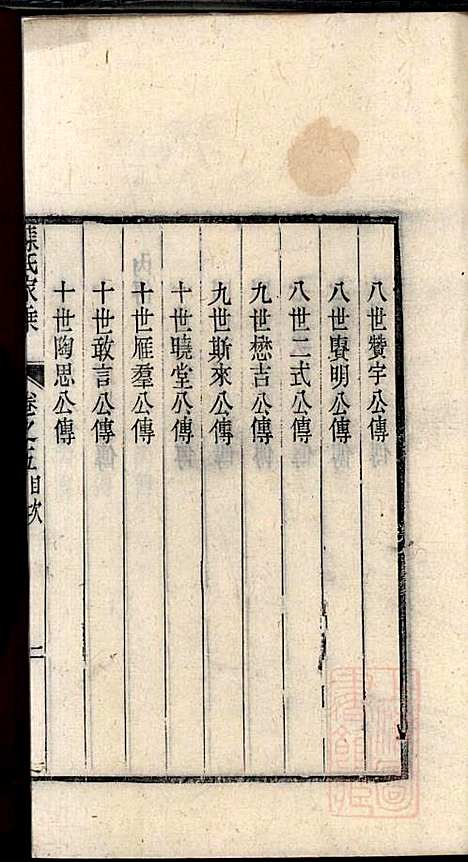 八世贊宇公傳
八世賡明公傳
八世二式公傳
九世懋吉公傳
九世斯來公傳
十世曉堂公傳
十世雁羣公傳
十世敢言公傳
十世陶思公傳
氏家乘
卷之五目次
二